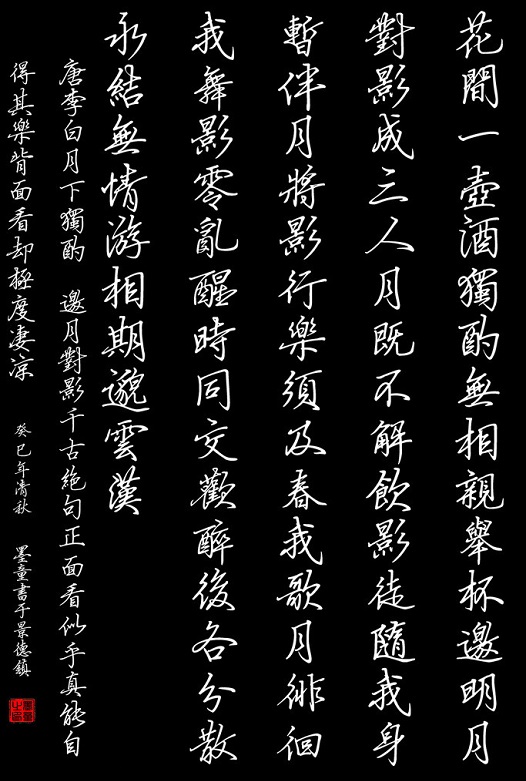 花間一壺酒獨酌無相親舉杯邀明月
對影成三人月既不解飲影徒隨我身
暫伴月將影行樂須及春我歌月徘徊
我舞影零亂醒時同交歡醉後各分散
永結無情游相期邈雲漢
唐李白月下獨酌 邀月對影千古絶句正面看似乎真能自
得其樂背面看却極度淒涼 癸巳年清秋 墨童書于景德鎮